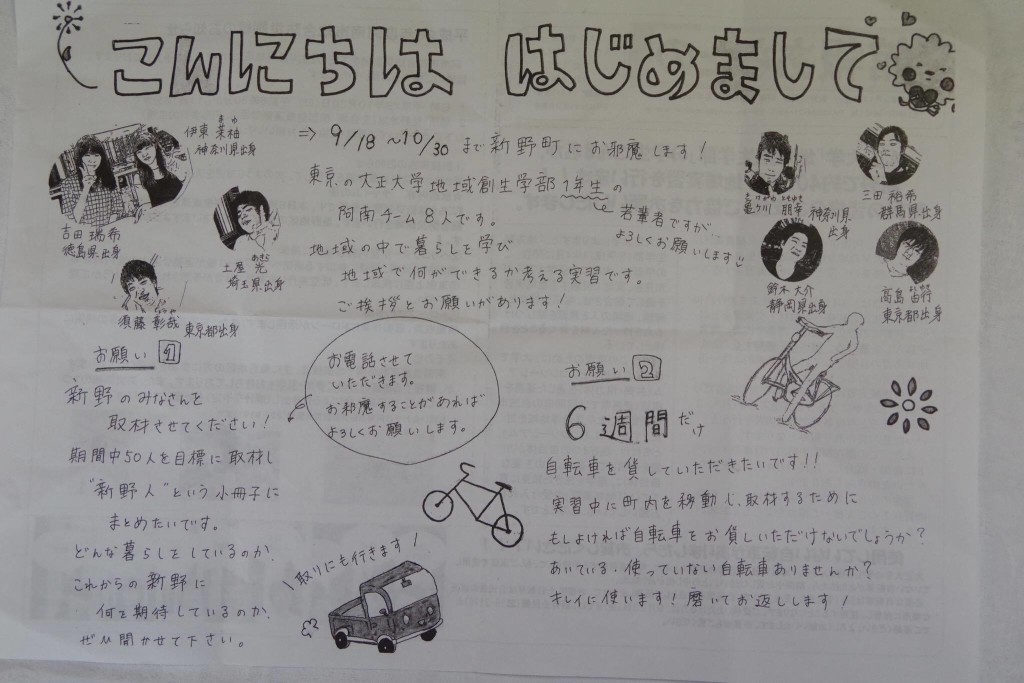 こんにちは はじめまして
伊東 茉柚
まゆ
神奈川県出身
吉田 瑞希
徳島県出身
土屋 光
あきら
埼玉県出身
須藤 彰哉
東京都出身
⇒ 9/18 〜10/30 まで 新野町にお邪魔します!
東京の大正大学地域創生学部1年生の
阿南チーム8人です。
若輩者ですが…
よろしくお願いします
地域の中で暮らしを学び
地域で何ができるか考える実習です。
ご挨拶とお願いがあります!
亀ケ川 朋幸 神奈川県
出身
三田 裕希
群馬県出身
鈴木 大介
静岡県出身
高島
東京都出身
お願い 1
新野のみなさんを
取材させてください!
期間中50人を目標に取材し
"新野人"という小冊子に
まとめたいです。
どんな暮らしをしているのか、
これからの新野に
何を期待しているのか、
ぜひ聞かせて下さい。
お電話させて
いただきます。
お邪魔することがあれば
よろしくお願いします。
\ 取りにも行きます! /
お願い 2
6週間だけ
自転車を貸していただきたいです!!
実習中に町内を移動し、取材するために
もしよければ自転車をお貸しいただけないでしょうか?
あいている・使っていない自転車ありませんか?
キレイに使います!磨いてお返しします!